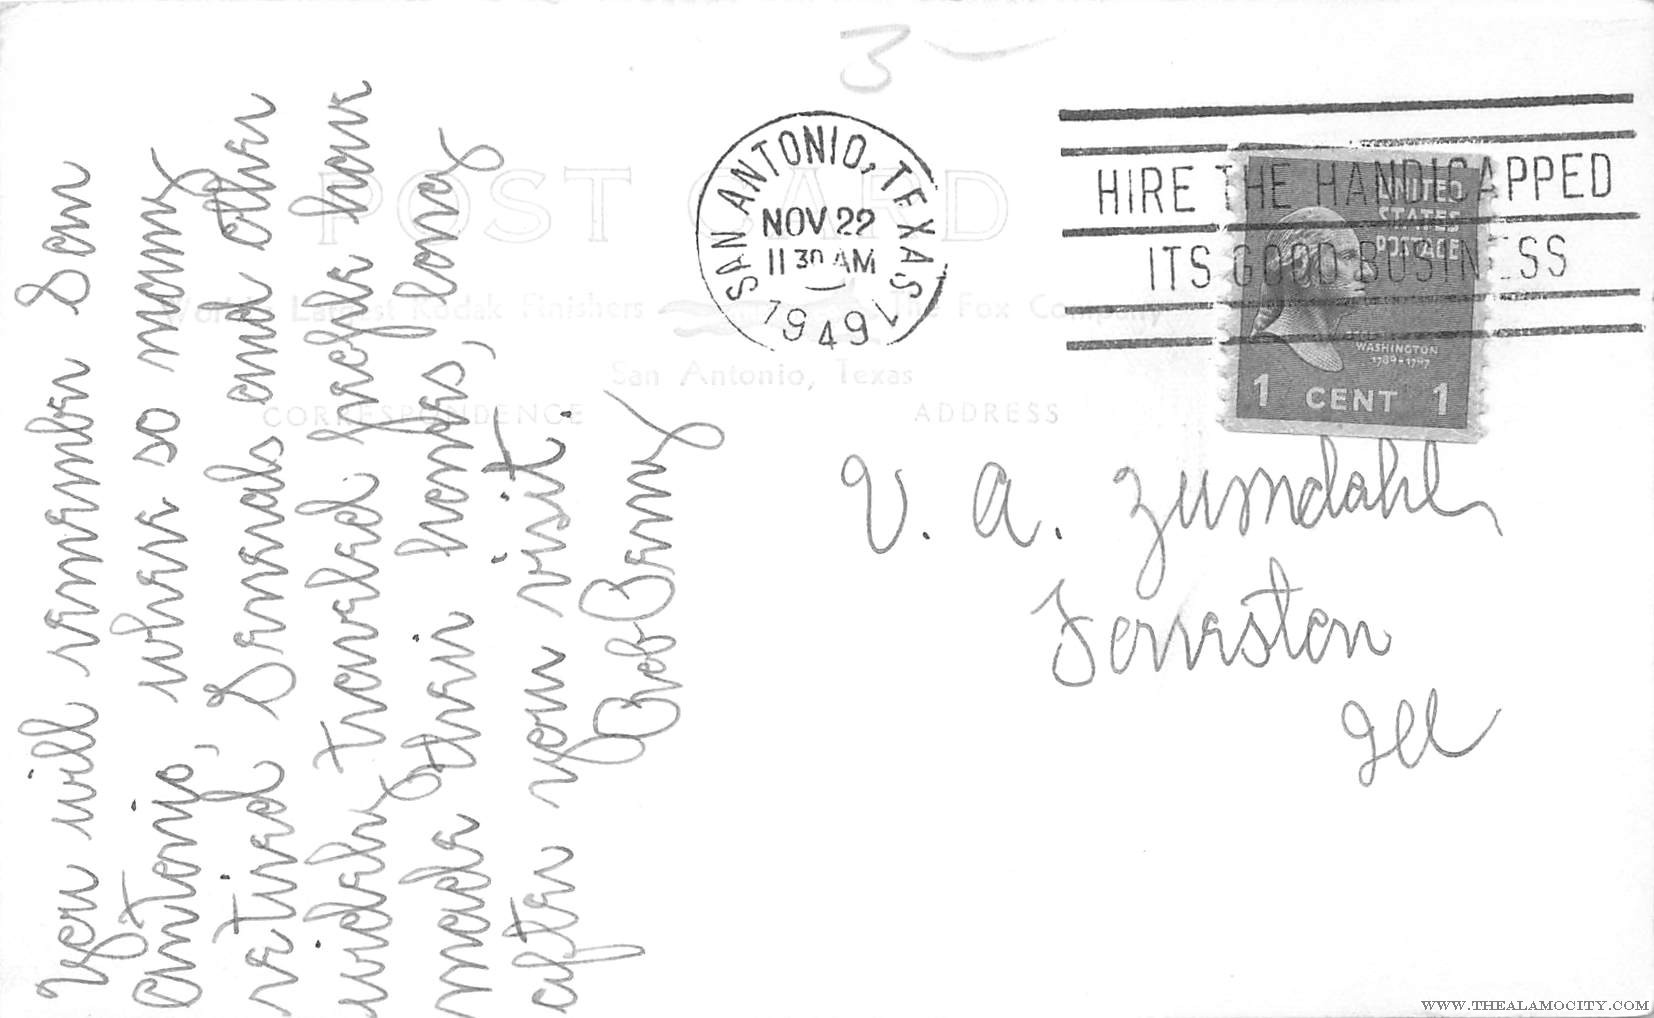 3
POST CARD
World's Largest Kodak Finishers The Fox Company
San Antonio, Texas
CORRESPONDENCE ADDRESS
SAN ANTONIO, TEXAS
NOV 22
11 30 AM
1949
HIRE THE HANDICAPPED
ITS GOOD BUSINESS
UNITED
STATES
POSTAGE
WASHINGTON
1789-1797
1 CENT 1
You will remember San
Antonio, where so many
retired Generals and other
widely traveled people have
made their homes, long
after you visit.
Bob Berny
V. A. Zumdahl
Forreston
Ill
WWW.THEALAMOCITY.COM